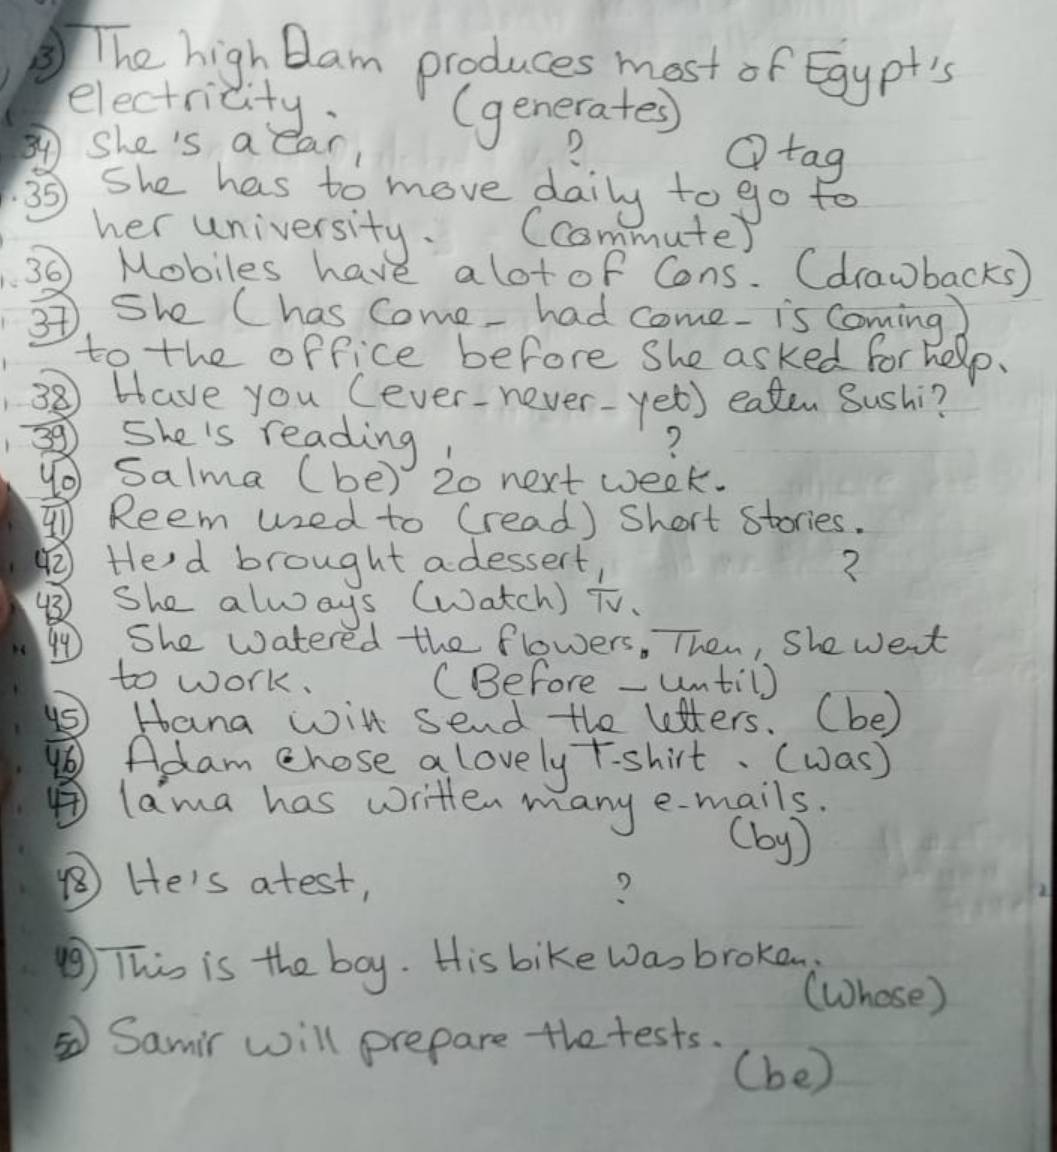 3) The high Dam produces most of Egypt's
electricity. (generates)
34) She's a car, ? Q tag
35) She has to move daily to go to
her university. (commute)
36) Mobiles have a lot of Cons. (drawbacks)
37) She (has Come - had come - is Coming)
to the office before she asked for help.
38) Have you (ever - never - yet) eaten Sushi?
39) She's reading, ?
40) Salma (be) 20 next week.
41) Reem used to (read) Short Stories.
42) He'd brought a dessert, ?
43) She always (watch) Tv.
44) She watered the flowers. Then, she went
to work. (Before - until)
45) Hana will send the letters. (be)
46) Adam Chose a lovely T-shirt. (was)
47) lama has written many e-mails.
(by)
48) He's a test, ?
49) This is the boy. His bike was broken.
(Whose)
50) Samir will prepare the tests.
(be)